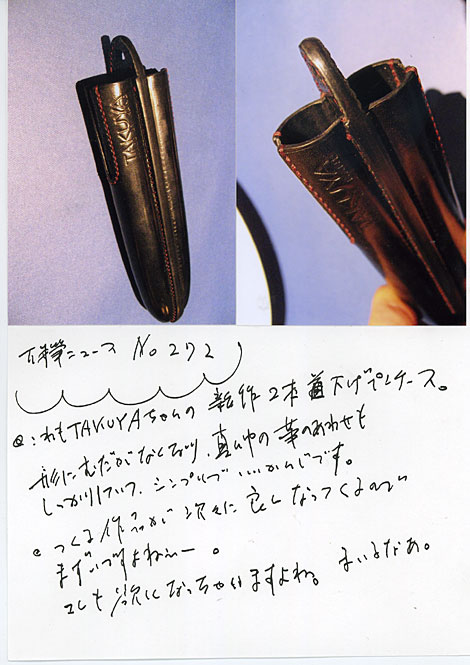 TAKUYA
ニュース No 272
これもTAKUYAちゃんの新作2本首下げペンケース。
形にむだがなくなり、真ん中の革のあわせも
しっかりしていて、シンプルでいいかんじです。
つくる作品が次々に良くなってくるので
まずいですよねぇー。
コレも欲しくなっちゃいますよね。まいるなあ。